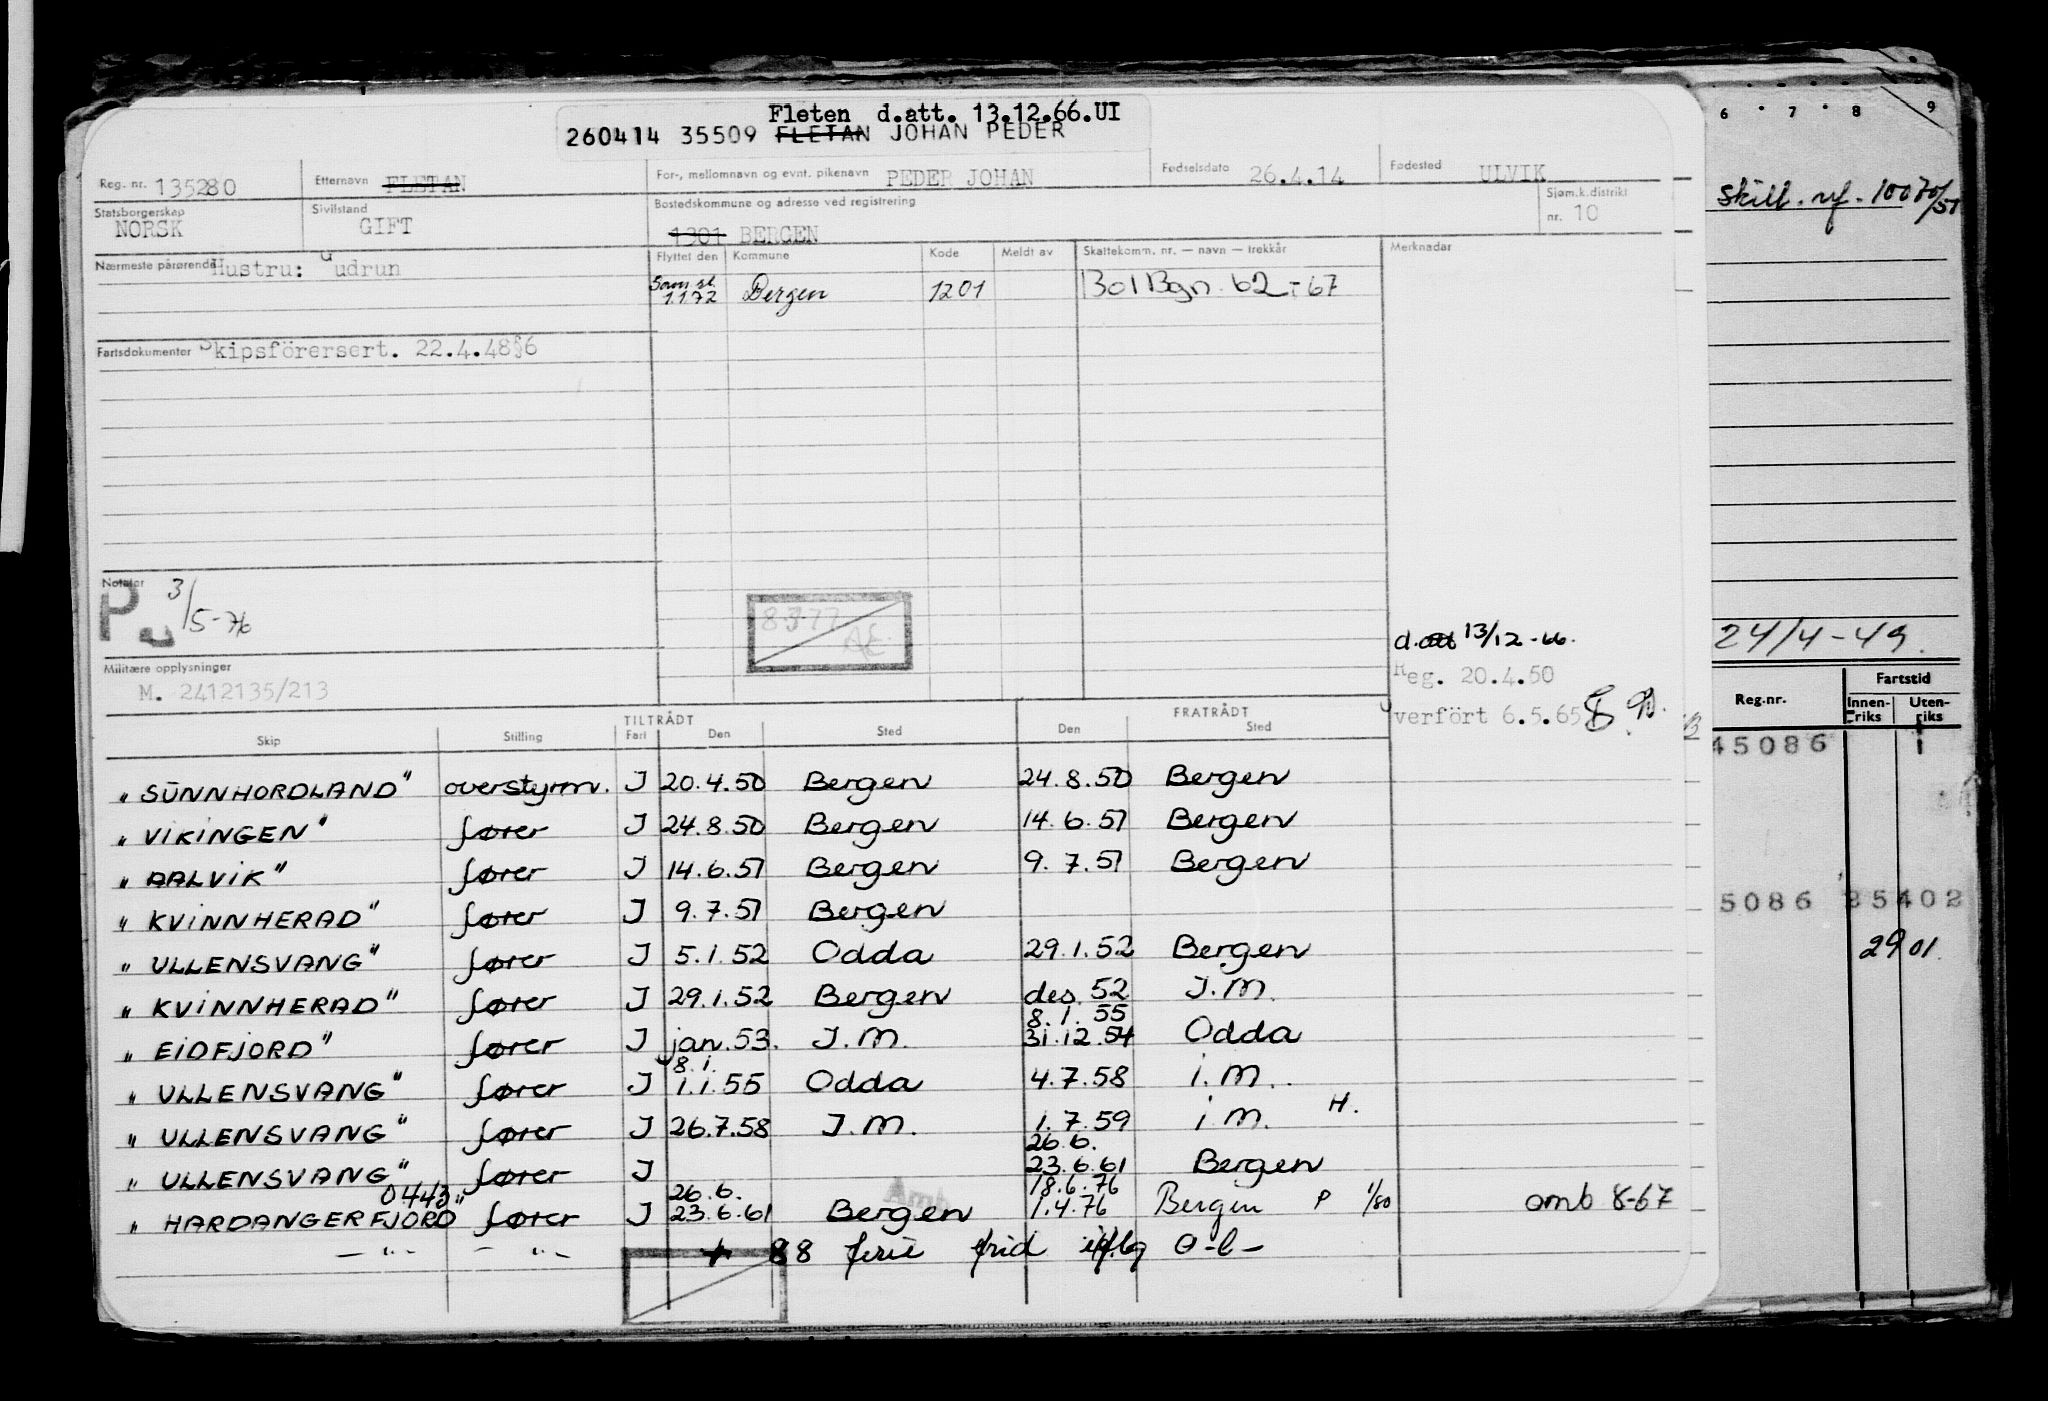 Fleten d.att. 13.12.66.UI
260414 35509 FLETAN JOHAN PEDER
Reg. nr. 135280 Etternavn FLETAN For-, mellomnavn og evnt. pikenavn PEDER JOHAN Fødselsdato 26.4.14 Fødested ULVIK
Statsborgerskap NORSK Sivilstand GIFT Bostedskommune og adresse ved registrering 1301 BERGEN Sjøm.k.distrikt nr. 10
Nærmeste pårørende Hustru: Gudrun Flyttet den Kommune Kode Meldt av Skattekomm. nr. — navn — trekkår Merknader
Som sl. 1.1.72 Bergen 1201 1301 Bgn. 62-67
Fartsdokumenter Skipsförersert. 22.4.48§6
Notater
3/5-76
8.3.77
Militære opplysninger
M. 2412135/213
d.att 13/12-66.
Reg. 20.4.50
verfört 6.5.65
TILTRÅDT FRATRÅDT
Skip Stilling Fart Den Sted Den Sted
" SUNNHORDLAND" overstyrm. I 20.4.50 Bergen 24.8.50 Bergen
" VIKINGEN" fører I 24.8.50 Bergen 14.6.51 Bergen
" AALVIK" fører I 14.6.51 Bergen 9.7.51 Bergen
" KVINNHERAD" fører I 9.7.51 Bergen
" ULLENSVANG" fører I 5.1.52 Odda 29.1.52 Bergen
" KVINNHERAD" fører I 29.1.52 Bergen des. 52 I.M.
8.1.55
" EIDFJORD" fører I jan. 53. I.M. 31.12.54 Odda
8.1.
" ULLENSVANG" fører I 1.1.55 Odda 4.7.58 i.M.
" ULLENSVANG" fører I 26.7.58 I.M. 1.7.59 i M. H.
26.6.
" ULLENSVANG" fører I 23.6.61 Bergen
0443 26.6. 18.6.76
" HARDANGERFJORD" fører I 23.6.61 Bergen 1.4.76 Bergen P 1/80 omb 8-67
— " — — " — + 88 ferie frid iflg O-l-
6 7 8 9
skill. nf. 10070/51
24/4-49.
Reg.nr. Fartstid
Innen-riks Uten-riks
45086
5086 25402
29 01